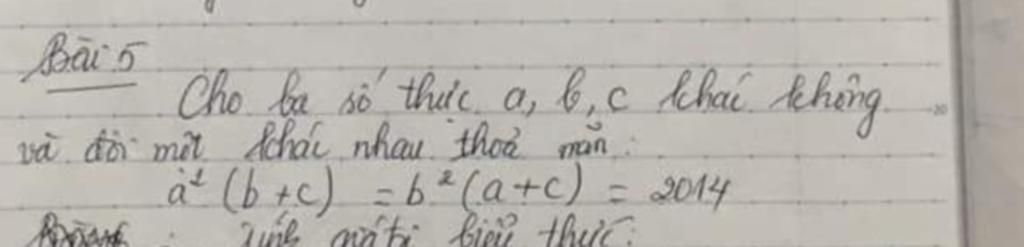 Bài 5
Cho ba số thực a, b, c khác không
và đôi một khác nhau thoả mãn:
a² (b + c) = b² (a + c) = 2014
: tính giá trị biểu thức: